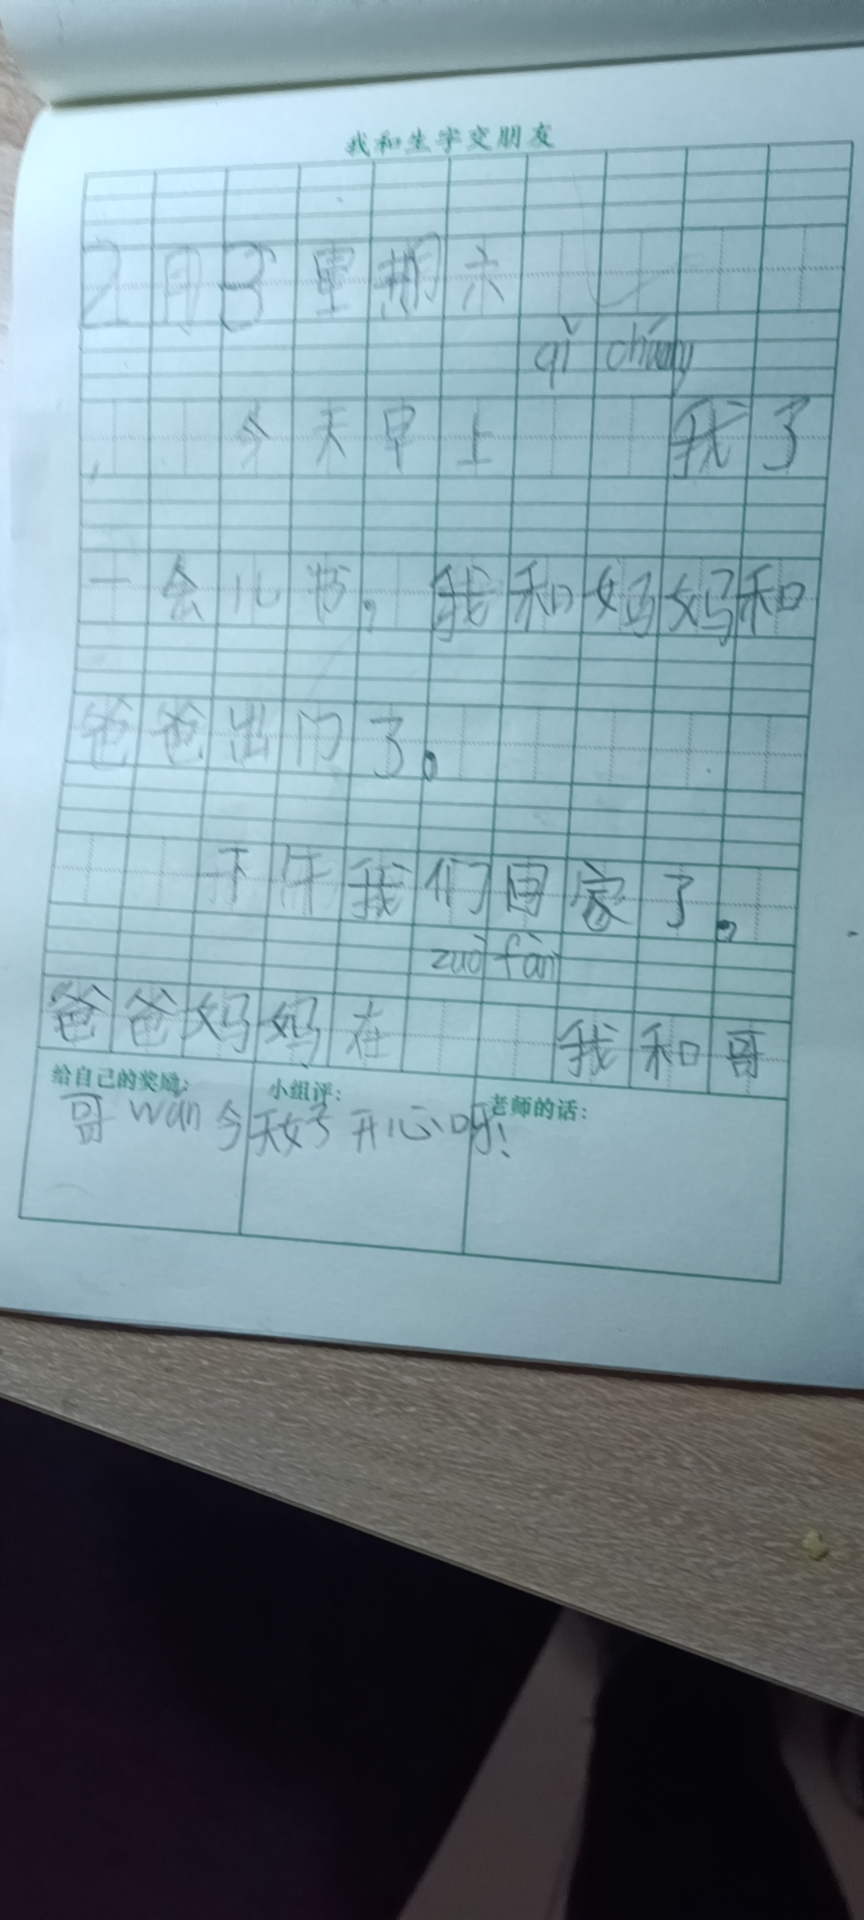 我和生字交朋友
2月3 星期六
qǐ chuáng
今天早上 我了
一会儿书。我和妈妈和
爸爸出门了。
下午我们回家了。
zuò fàn
爸爸妈妈在 我和哥
给自己的奖励: 小组评: 老师的话:
哥 wán 今天好开心呀!